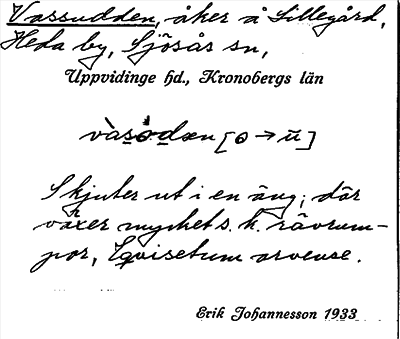 Vassudden, åker å Lillegård,
Heda by, Sjösås sn,
Uppvidinge hd., Kronobergs län
vàsodæn [o → ū]
Skjuter ut i en äng; där
växer mycket s. k. rävrum-
por, Equisetum arvense.
Erik Johannesson 1933